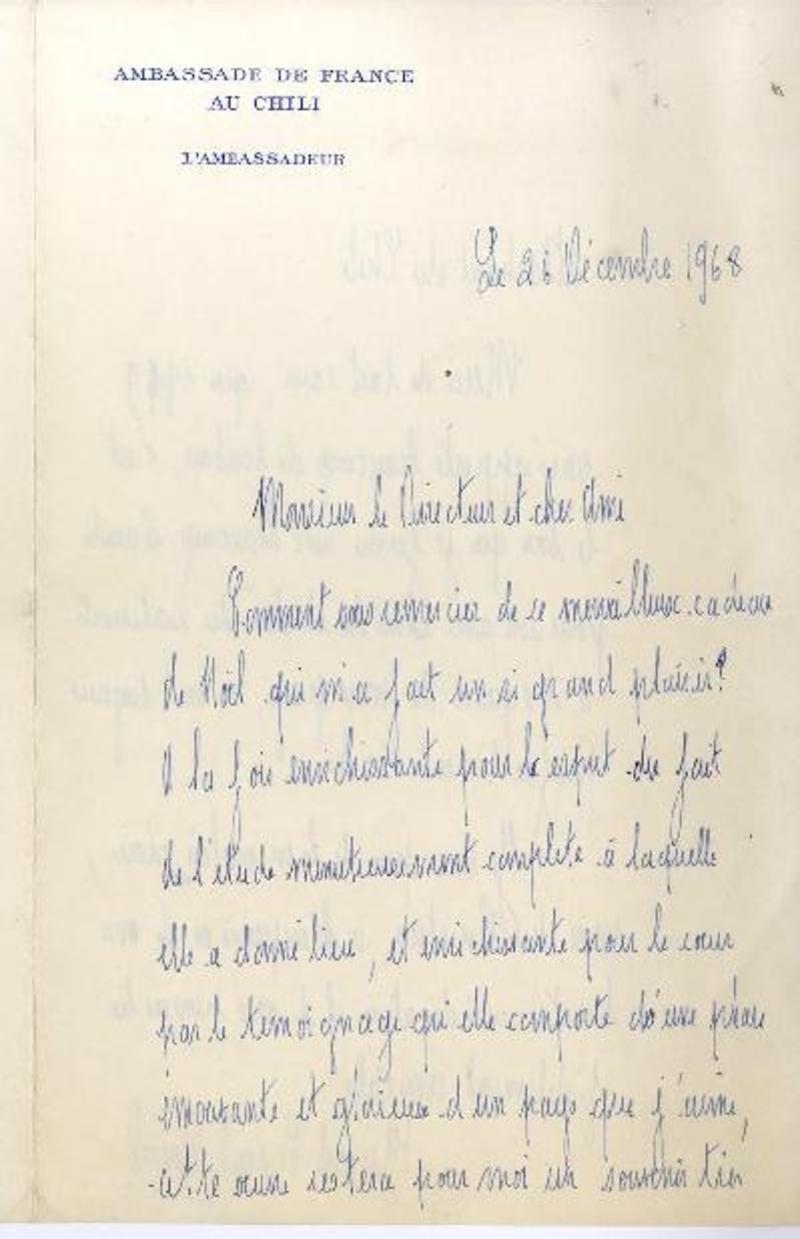 AMBASSADE DE FRANCE
AU CHILI
L'AMBASSADEUR
Le 26 Décembre 1968
Monsieur le Directeur et cher Ami
Comment vous remercier de ce merveilleux cadeau
de Noël qui m'a fait un si grand plaisir?
A la fois enrichissante pour l'esprit du fait
de l'étude minutieusement complète à laquelle
elle a donné lieu, et enrichissante pour le cœur
par le témoignage qu'elle comporte d'une
émouvante et d'un pays que j'aime,
cette restera pour moi un souvenir très